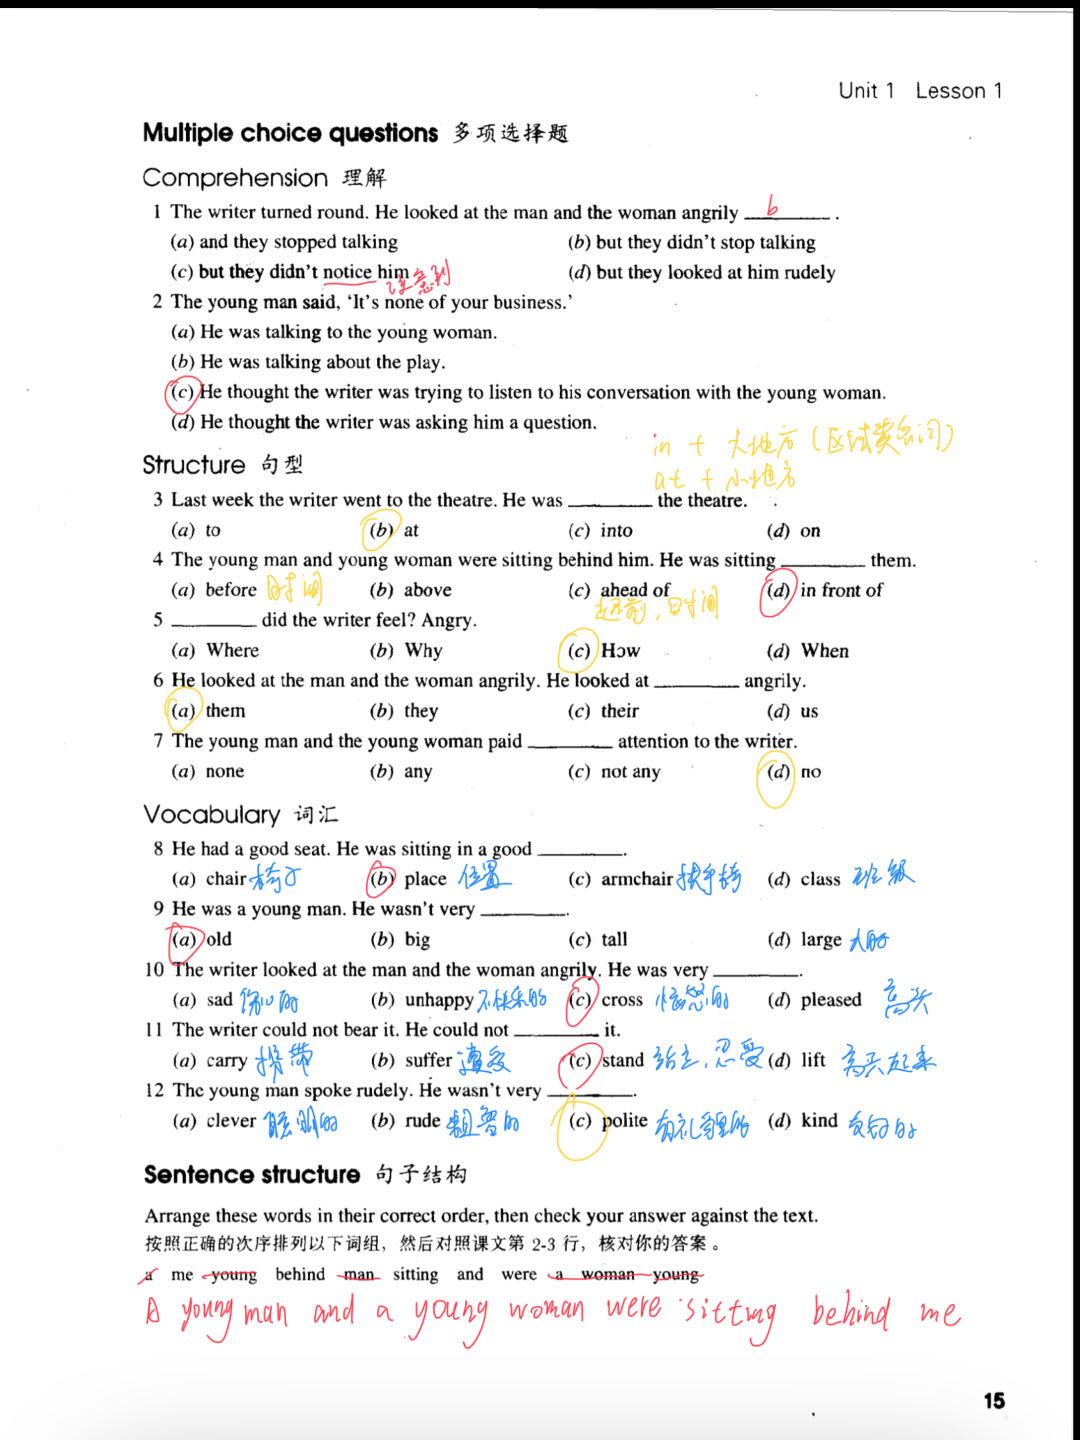 Unit 1 Lesson 1
Multiple choice questions 多项选择题
Comprehension 理解
1 The writer turned round. He looked at the man and the woman angrily b .
(a) and they stopped talking (b) but they didn't stop talking
(c) but they didn't notice him 注意到 (d) but they looked at him rudely
2 The young man said, 'It's none of your business.'
(a) He was talking to the young woman.
(b) He was talking about the play.
(c) He thought the writer was trying to listen to his conversation with the young woman.
(d) He thought the writer was asking him a question.
in + 大地方（区域类名词）
Structure 句型
at + 小地方
3 Last week the writer went to the theatre. He was ________ the theatre.
(a) to (b) at (c) into (d) on
4 The young man and young woman were sitting behind him. He was sitting ________ them.
(a) before 时间 (b) above (c) ahead of (d) in front of
超前，时间
5 ________ did the writer feel? Angry.
(a) Where (b) Why (c) How (d) When
6 He looked at the man and the woman angrily. He looked at ________ angrily.
(a) them (b) they (c) their (d) us
7 The young man and the young woman paid ________ attention to the writer.
(a) none (b) any (c) not any (d) no
Vocabulary 词汇
8 He had a good seat. He was sitting in a good ________.
(a) chair 椅子 (b) place 位置 (c) armchair 扶手椅 (d) class 班级
9 He was a young man. He wasn't very ________.
(a) old (b) big (c) tall (d) large 大的
10 The writer looked at the man and the woman angrily. He was very ________.
(a) sad 伤心的 (b) unhappy 不快乐的 (c) cross 恼怒的 (d) pleased 高兴
11 The writer could not bear it. He could not ________ it.
(a) carry 携带 (b) suffer 遭受 (c) stand 站立，忍受 (d) lift
12 The young man spoke rudely. He wasn't very ________.
(a) clever 聪明的 (b) rude 粗鲁的 (c) polite 有礼貌的 (d) kind 友好的
Sentence structure 句子结构
Arrange these words in their correct order, then check your answer against the text.
按照正确的次序排列以下词组，然后对照课文第 2-3 行，核对你的答案。
a me young behind man sitting and were a woman young
A young man and a young woman were sitting behind me
15